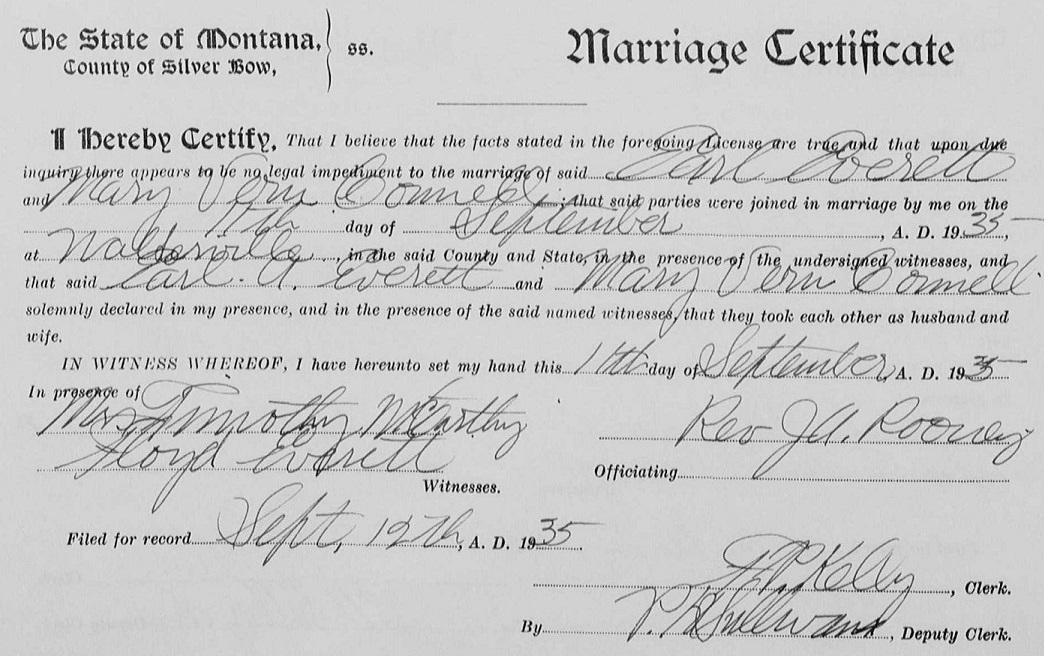 The State of Montana, } ss.
County of Silver Bow,
Marriage Certificate
I Hereby Certify, That I believe that the facts stated in the foregoing License are true and that upon due
inquiry there appears to be no legal impediment to the marriage of said Earl Everett
and Mary Vern Connell ; that said parties were joined in marriage by me on the
11th day of September, A. D. 1935,
at Walkerville, in the said County and State, in the presence of the undersigned witnesses, and
that said Earl A. Everett and Mary Vern Connell
solemnly declared in my presence, and in the presence of the said named witnesses, that they took each other as husband and
wife.
IN WITNESS WHEREOF, I have hereunto set my hand this 11th day of September, A. D. 1935
In presence of
Mrs Timothy McCarthy
Floyd Everett
Witnesses.
Rev J. Rooney
Officiating
Filed for record Sept, 12th, A. D. 1935.
Kelly, Clerk.
By Sullivan, Deputy Clerk.